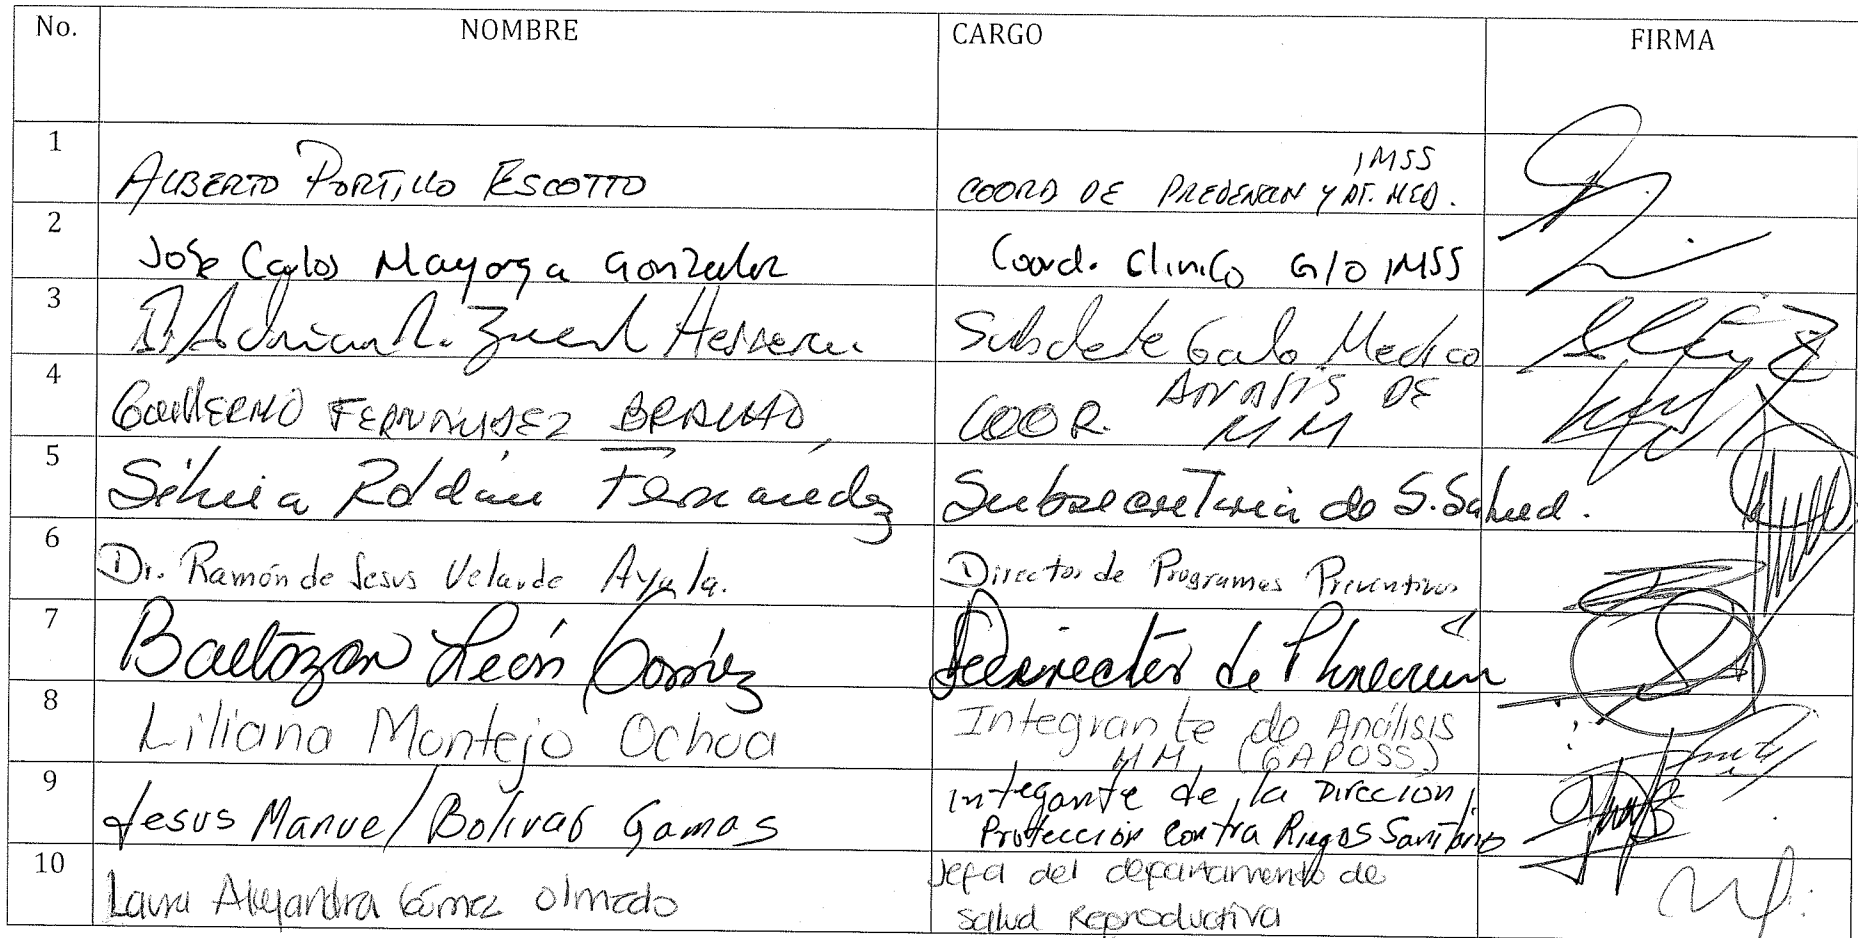 No. NOMBRE CARGO FIRMA
1 ALBERTO PORTILLO ESCOTTO IMSS
COORD DE Y AT. MED.
2 Jose Carlos Mayorga Gonzalez Coord. Clinico G/O IMSS
3 Dr. Adrian Herrera. Medico
4 GUILLERMO FERNANDEZ COOR. DE
MM
5 Silvia Roldán Fernandez Subsecretaria de S. Salud.
6 Dr. Ramón de Jesus Velarde Ayala. Director de Programas Preventivos
7 Baltazar León Gómez de
8 Liliana Montejo Ochoa Integrante de Análisis
MM (GAPOSS)
9 Jesus Manuel Bolivar Gamas Integante de la Dirección
Protección contra Riegos Sanitarios
10 Laura Alejandra Gómez Olmedo Jefa del departamento de
salud Reproductiva